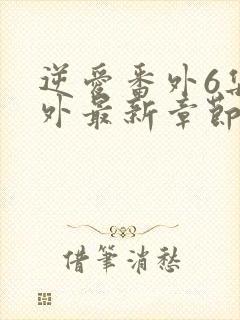 逆愛番外6集
外最新章節
借筆消愁